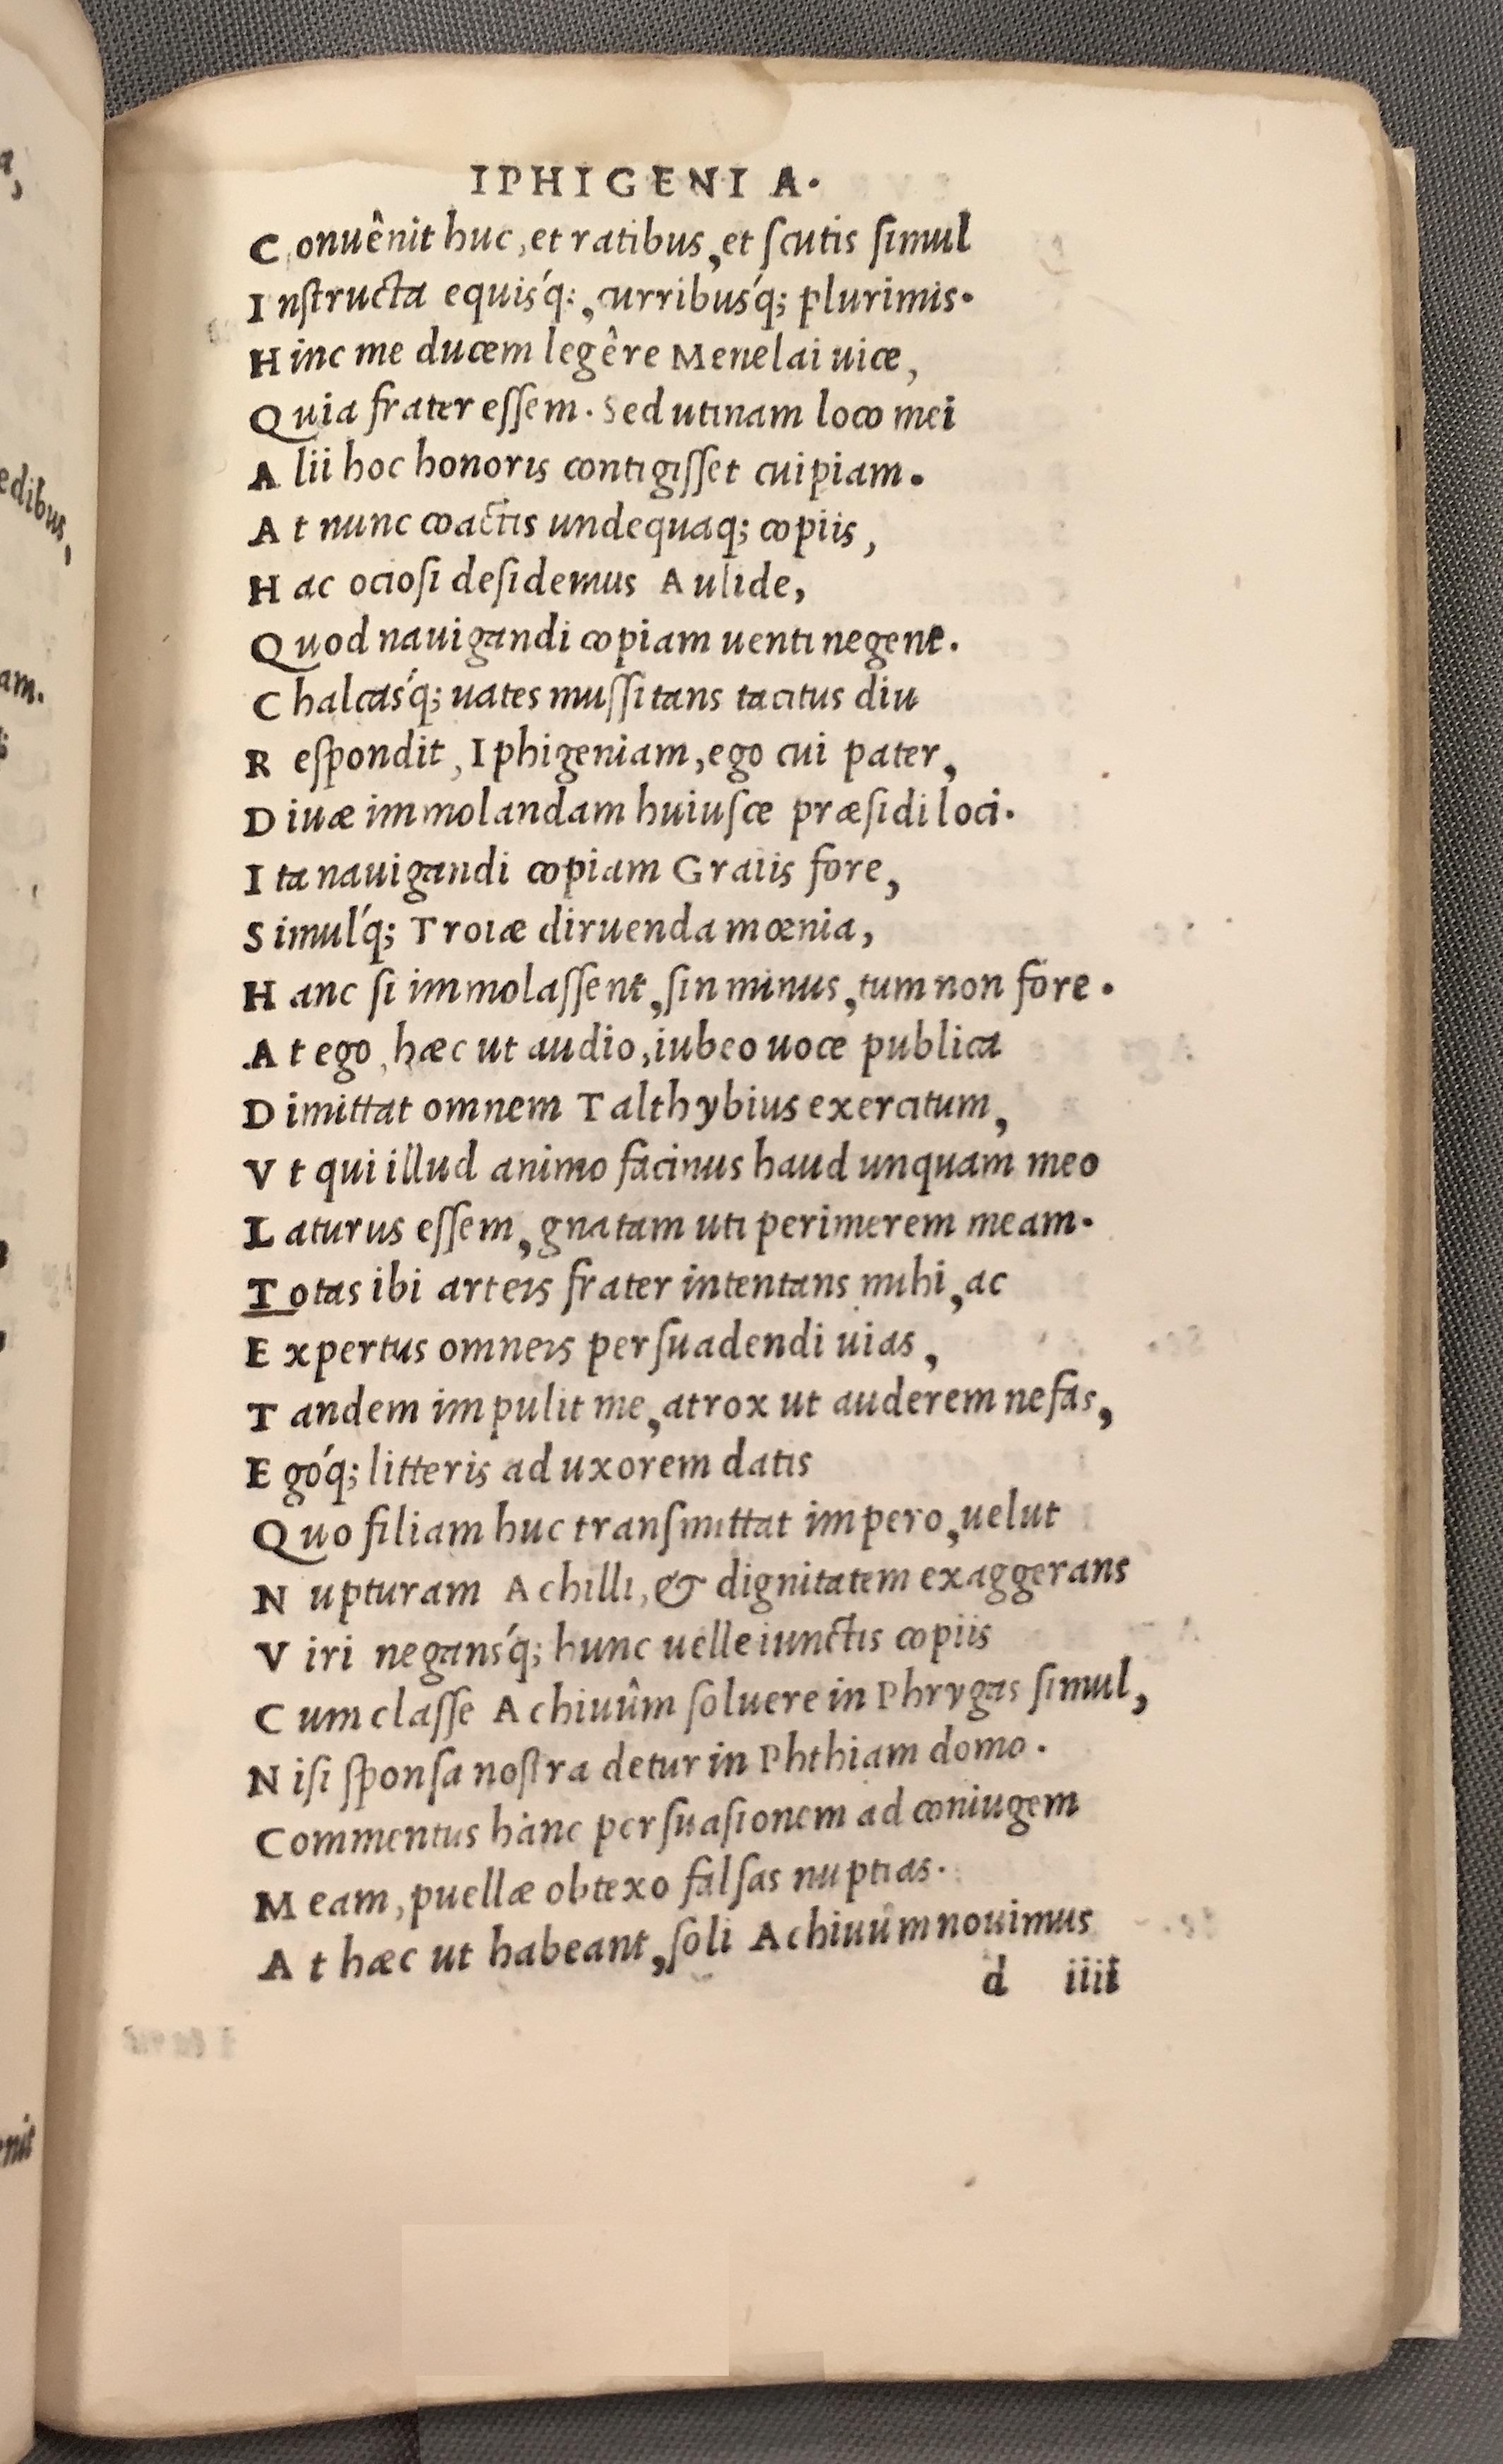 IPHIGENIA.
Conuênit huc, et ratibus, et ſcutis ſimul
Inſtructa equis´q:, curribus´q; plurimis.
Hinc me ducem legêre Menelai uice,
Quia frater eſſem. Sed utinam loco mei
Alii hoc honoris contigiſſet cuipiam.
At nunc coactis undequaq; copiis,
Hac ocioſi deſidemus Aulide,
Quod nauigandi copiam uenti negent.
Chalcas´q; uates muſſitans tacitus diu
Reſpondit, Iphigeniam, ego cui pater,
Diuæ immolandam huiuſce præſidi loci.
Ita nauigandi copiam Graiis fore,
Simul´q; Troiæ diruenda mœnia,
Hanc ſi immolaſſent, ſin minus, tum non fore.
At ego, hæc ut audio, iubeo uoce publica
Dimittat omnem Talthybius exercitum,
Vt qui illud animo facinus haud unquam meo
Laturus eſſem, gnatam uti perimerem meam.
Totas ibi arteis frater intentans mihi, ac
Expertus omneis perſuadendi uias,
Tandem impulit me, atrox ut auderem nefas,
Ego´q; litteris ad uxorem datis
Quo filiam huc tranſmittat impero, uelut
Nupturam Achilli, & dignitatem exaggerans
Viri negans´q; hunc uelle iunctis copiis
Cum claſſe Achiuûm ſoluere in Phrygas ſimul,
Niſi ſponſa noſtra detur in Phthiam domo.
Commentus hanc perſuaſionem ad coniugem
Meam, puellæ obtexo falſas nuptias.
At hæc ut habeant, ſoli Achiuûm nouimus
d iiii
edibus,
am.
enit